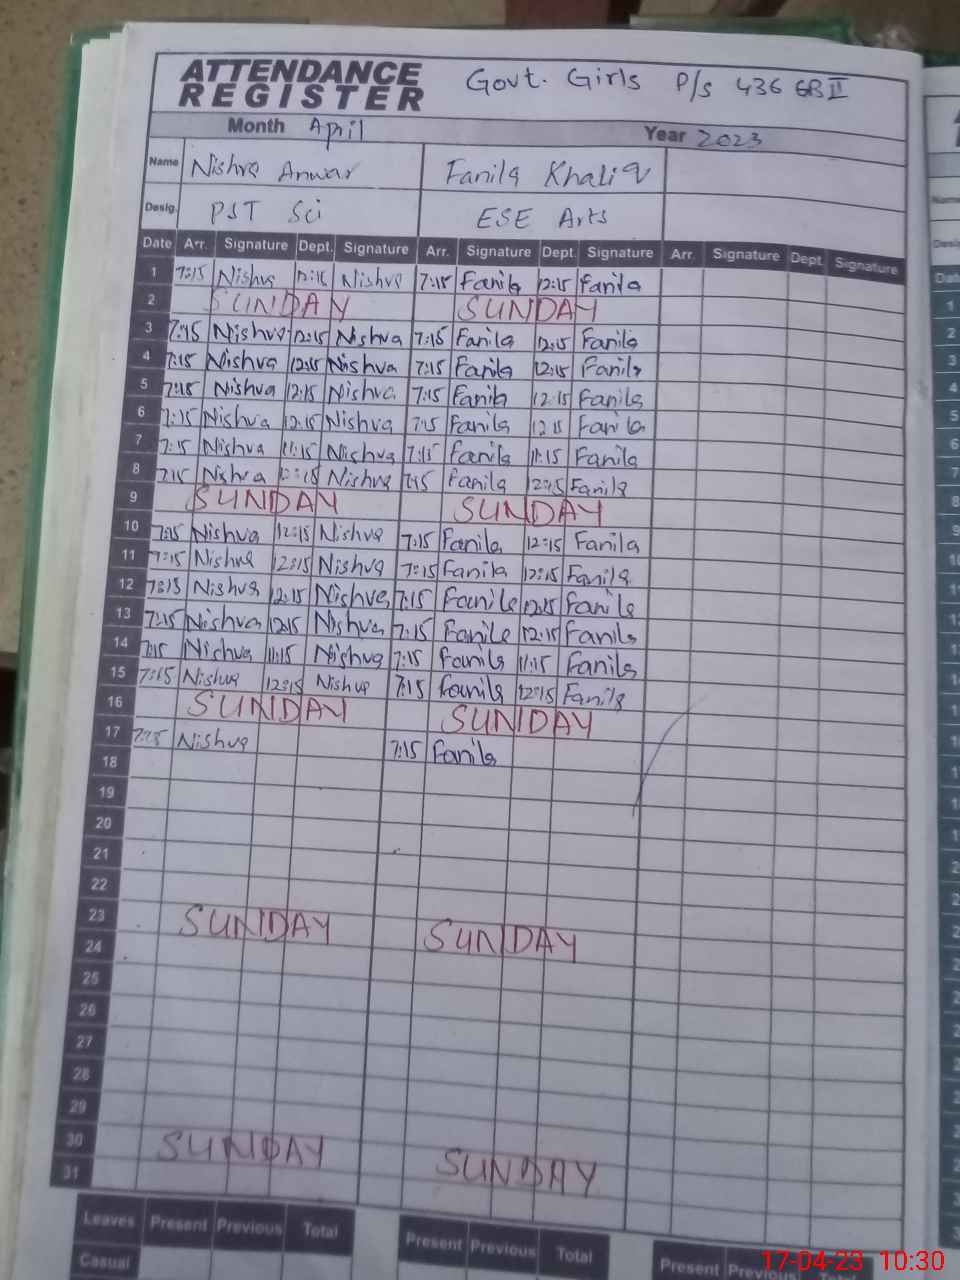 ATTENDANCE REGISTER Govt. Girls P/S 436 GB II
Month April Year 2023
Name Nishva Anwar Fanila Khaliq
Desig. PST Sci ESE Arts
Date Arr. Signature Dept. Signature Arr. Signature Dept. Signature Arr. Signature Dept. Signature
1 7:15 Nishva 12:15 Nishva 7:15 Fanila 12:15 Fanila
2 SUNDAY SUNDAY
3 7:15 Nishva 12:15 Nishva 7:15 Fanila 12:15 Fanila
4 7:15 Nishva 12:15 Nishva 7:15 Fanila 12:15 Fanila
5 7:15 Nishva 12:15 Nishva 7:15 Fanila 12:15 Fanila
6 7:15 Nishva 12:15 Nishva 7:15 Fanila 12:15 Fanila
7 7:15 Nishva 11:15 Nishva 7:15 Fanila 11:15 Fanila
8 7:15 Nishva 12:15 Nishva 7:15 Fanila 12:15 Fanila
9 SUNDAY SUNDAY
10 7:15 Nishva 12:15 Nishva 7:15 Fanila 12:15 Fanila
11 7:15 Nishva 12:15 Nishva 7:15 Fanila 12:15 Fanila
12 7:15 Nishva 12:15 Nishva 7:15 Fanila 12:15 Fanila
13 7:15 Nishva 12:15 Nishva 7:15 Fanila 12:15 Fanila
14 7:15 Nishva 11:15 Nishva 7:15 Fanila 11:15 Fanila
15 7:15 Nishva 12:15 Nishva 7:15 Fanila 12:15 Fanila
16 SUNDAY SUNDAY
17 7:15 Nishva 7:15 Fanila
18
19
20
21
22
23 SUNDAY SUNDAY
24
25
26
27
28
29
30 SUNDAY SUNDAY
31
Leaves Present Previous Total Present Previous Total Present Previous
Casual
17-04-23 10:30